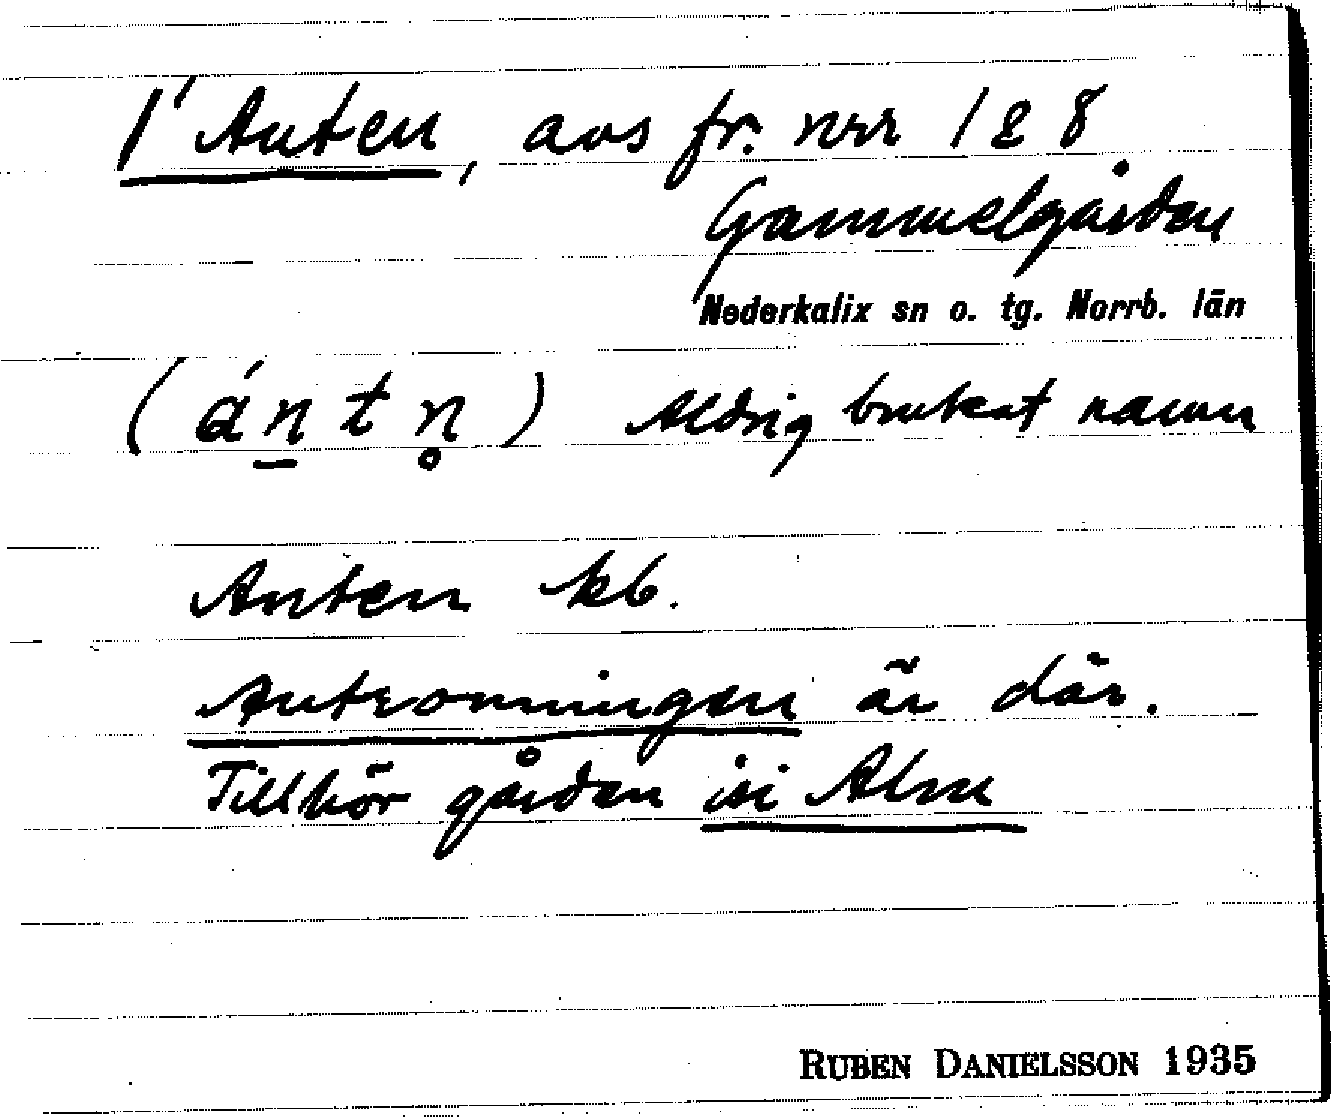 1' Anten, avs fr. nrr 1 2 8
Gammelgården
Nederkalix sn o. tg. Norrb. län
(án̲t n̥) Aldrig brukat namn
Anten kb.
Antronningen är där.
Tillhör gården isi Alm
RUBEN DANIELSSON 1935